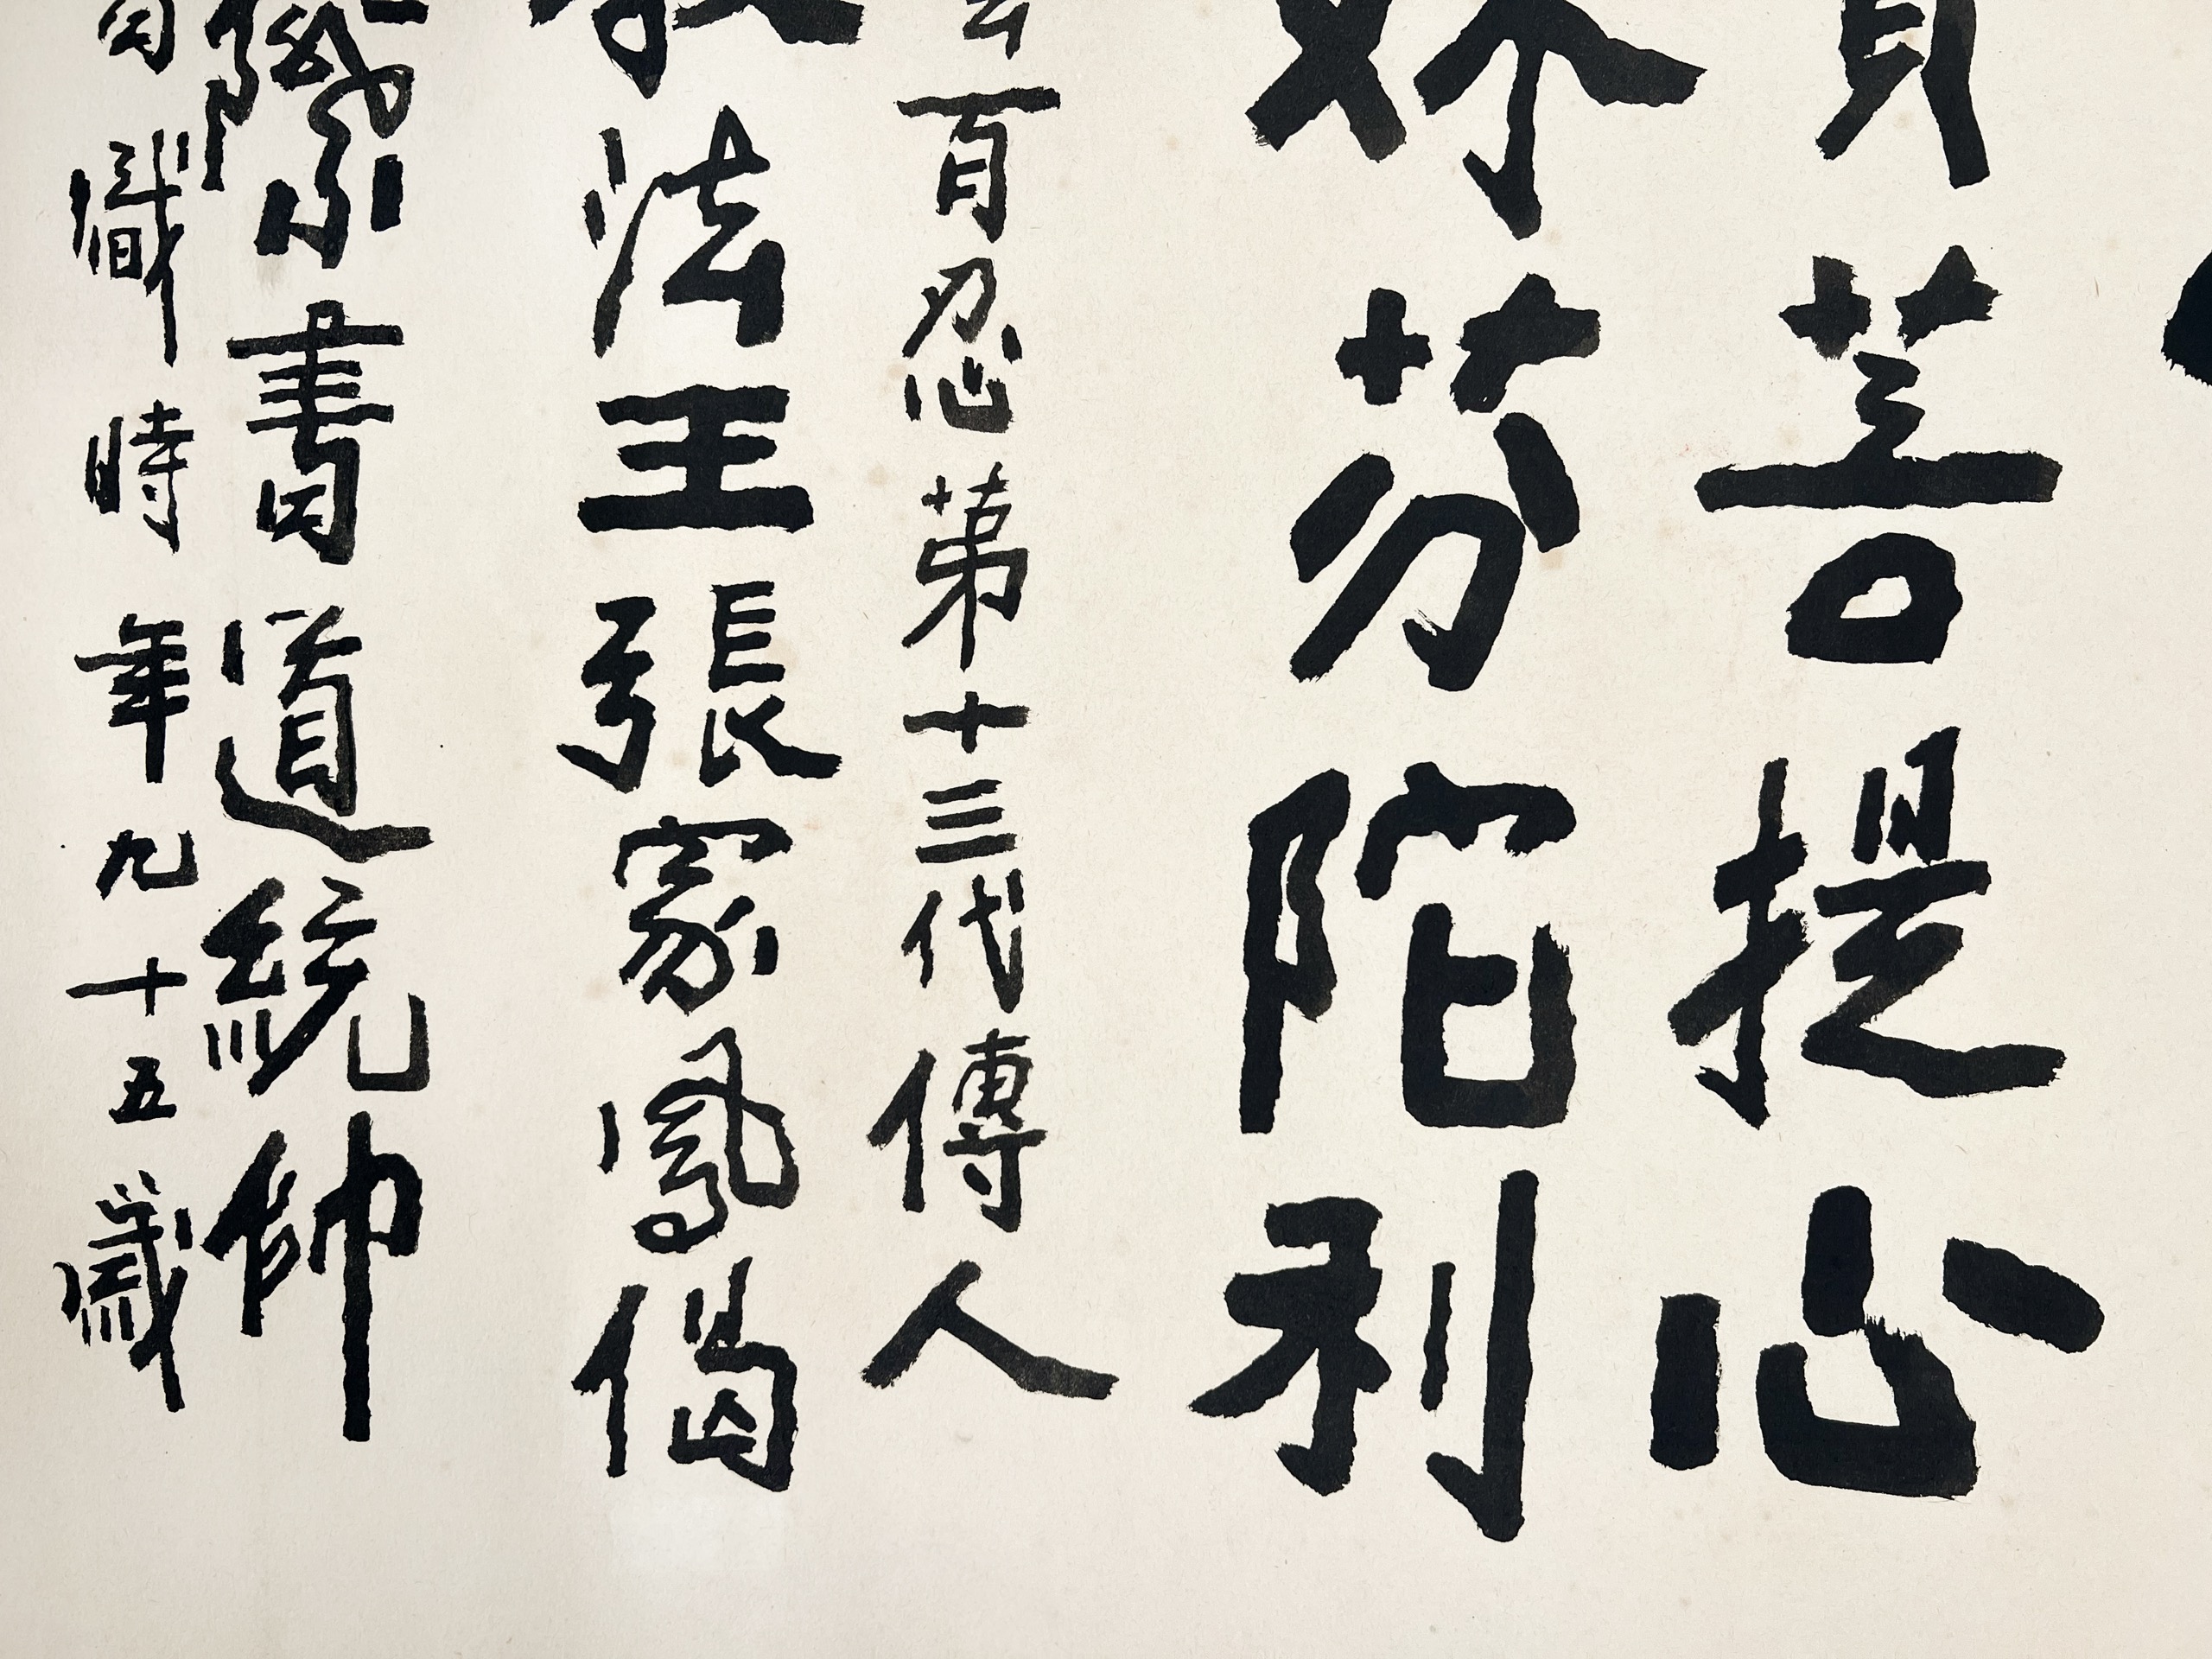 菩提心
芬陀利
百忍第十三代傳人
法王張家鳳偈
書道統帥
識時年九十五歲